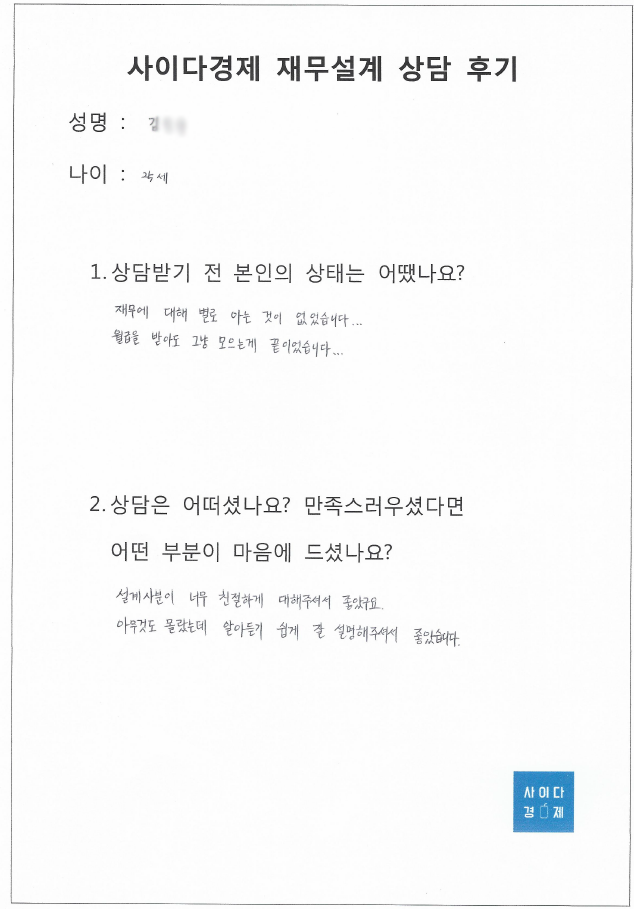 사이다경제 재무설계 상담 후기
성명 : 김
나이 : 25세
1. 상담받기 전 본인의 상태는 어땠나요?
재무에 대해 별로 아는 것이 없었습니다...
월급을 받아도 그냥 모으는게 끝이었습니다...
2. 상담은 어떠셨나요? 만족스러우셨다면
어떤 부분이 마음에 드셨나요?
설계사분이 너무 친절하게 대해주셔서 좋았구요.
아무것도 몰랐는데 알아듣기 쉽게 잘 설명해주셔서 좋았습니다.
사이다
경제